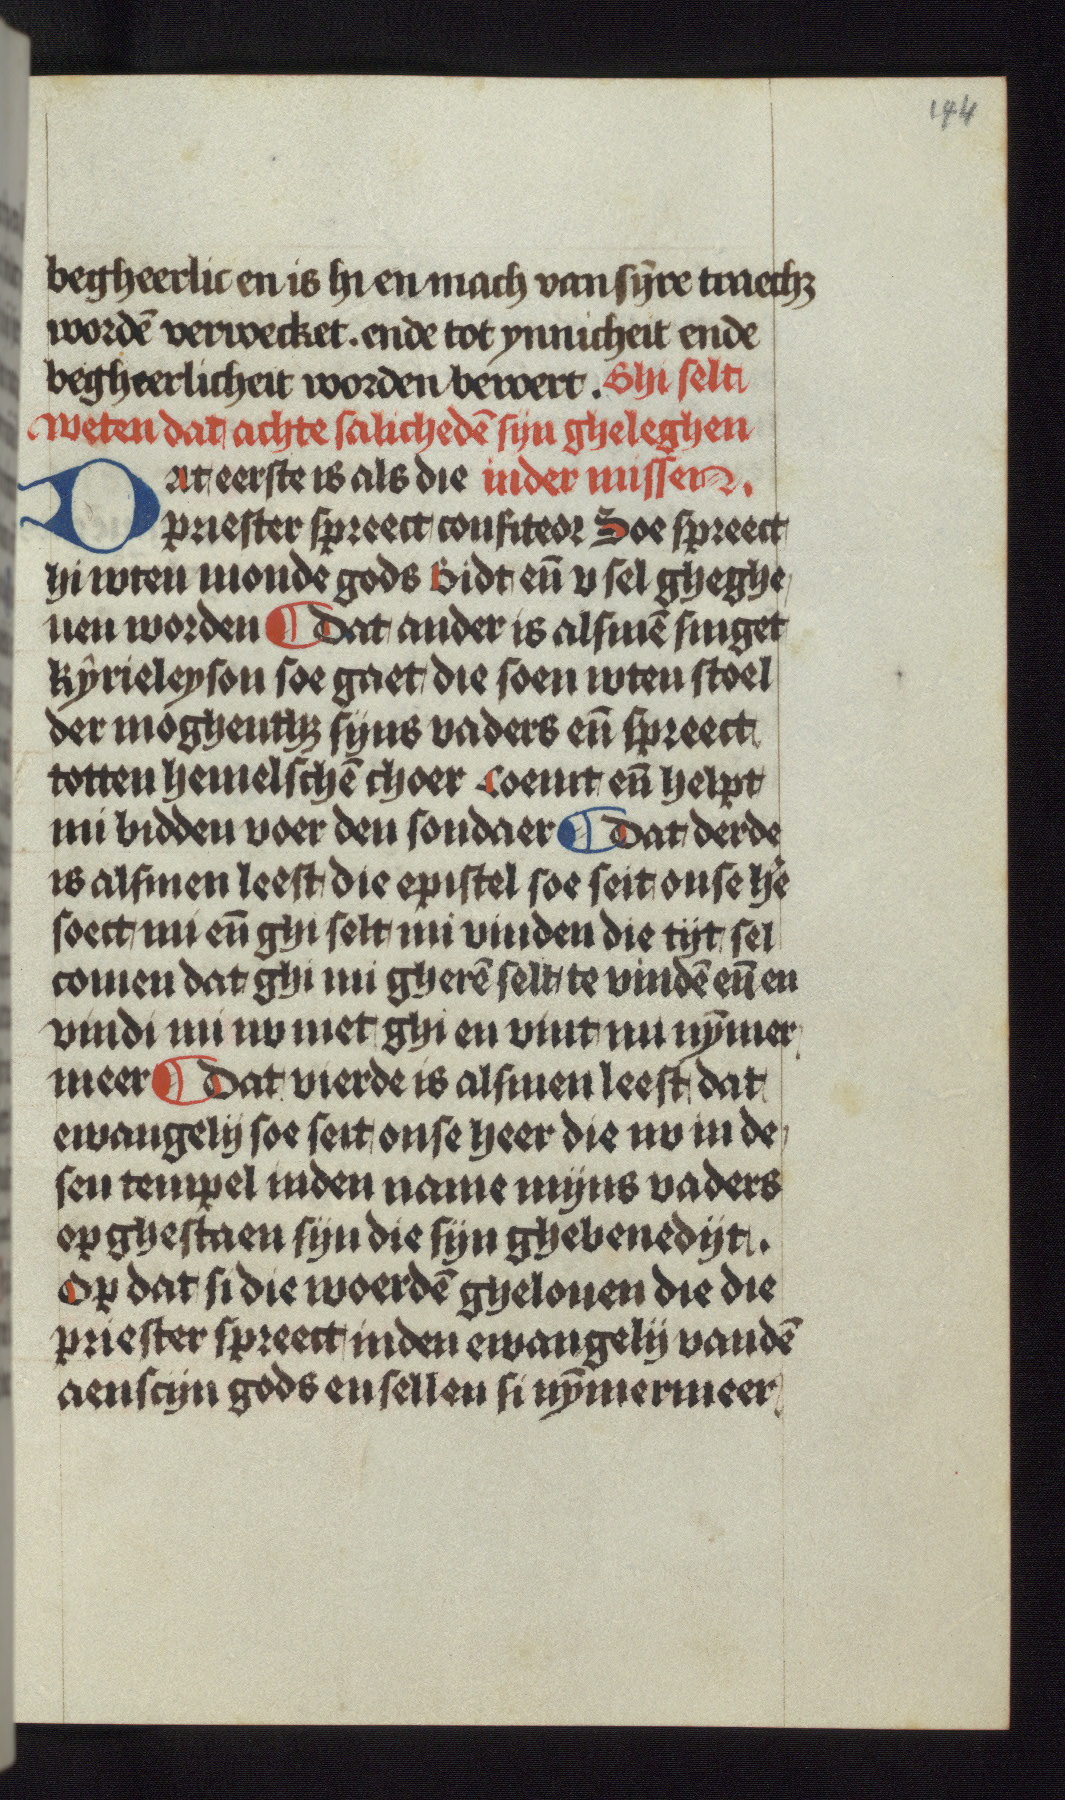 144
begheerlic en is hi en mach van sÿre traechꝫ
wordē verwecket. ende tot ynnicheit ende
begheerlicheit worden beroert. Ghi selt
weten dat achte salichedē sijn gheleghen
Dat eerste is als die in der missen.
priester spreect confiteor Soe spreect
hi wten monde gods Bidt en̄ v sel gheghe
uen worden ¶ Dat ander is alsmē singet
kÿrieleyson soe gaet die soen wten stoel
der moghenthꝫ sijns vaders en̄ spreect
totten hemelschē choer Coemt en̄ helpt
mi bidden voer den sondaer ¶ Dat derde
is alsmen leest die epistel soe seit onse he᷑
soect mi en̄ ghi selt mi vinden die tijt sel
comen dat ghi mi gherē selt te vindē en̄ en
vindi mi nv niet ghi en vint mi nȳmer
meer ¶ Dat vierde is alsmen leest dat
ewangelij soe seit onse heer die nv in de
sen tempel inden name mijns vaders
op ghestaen sijn die sijn ghebenedijt.
Op dat si die woerdē ghelouen die die
priester spreect inden ewangelij vandē
aenscijn gods en sellen si nȳmermeer